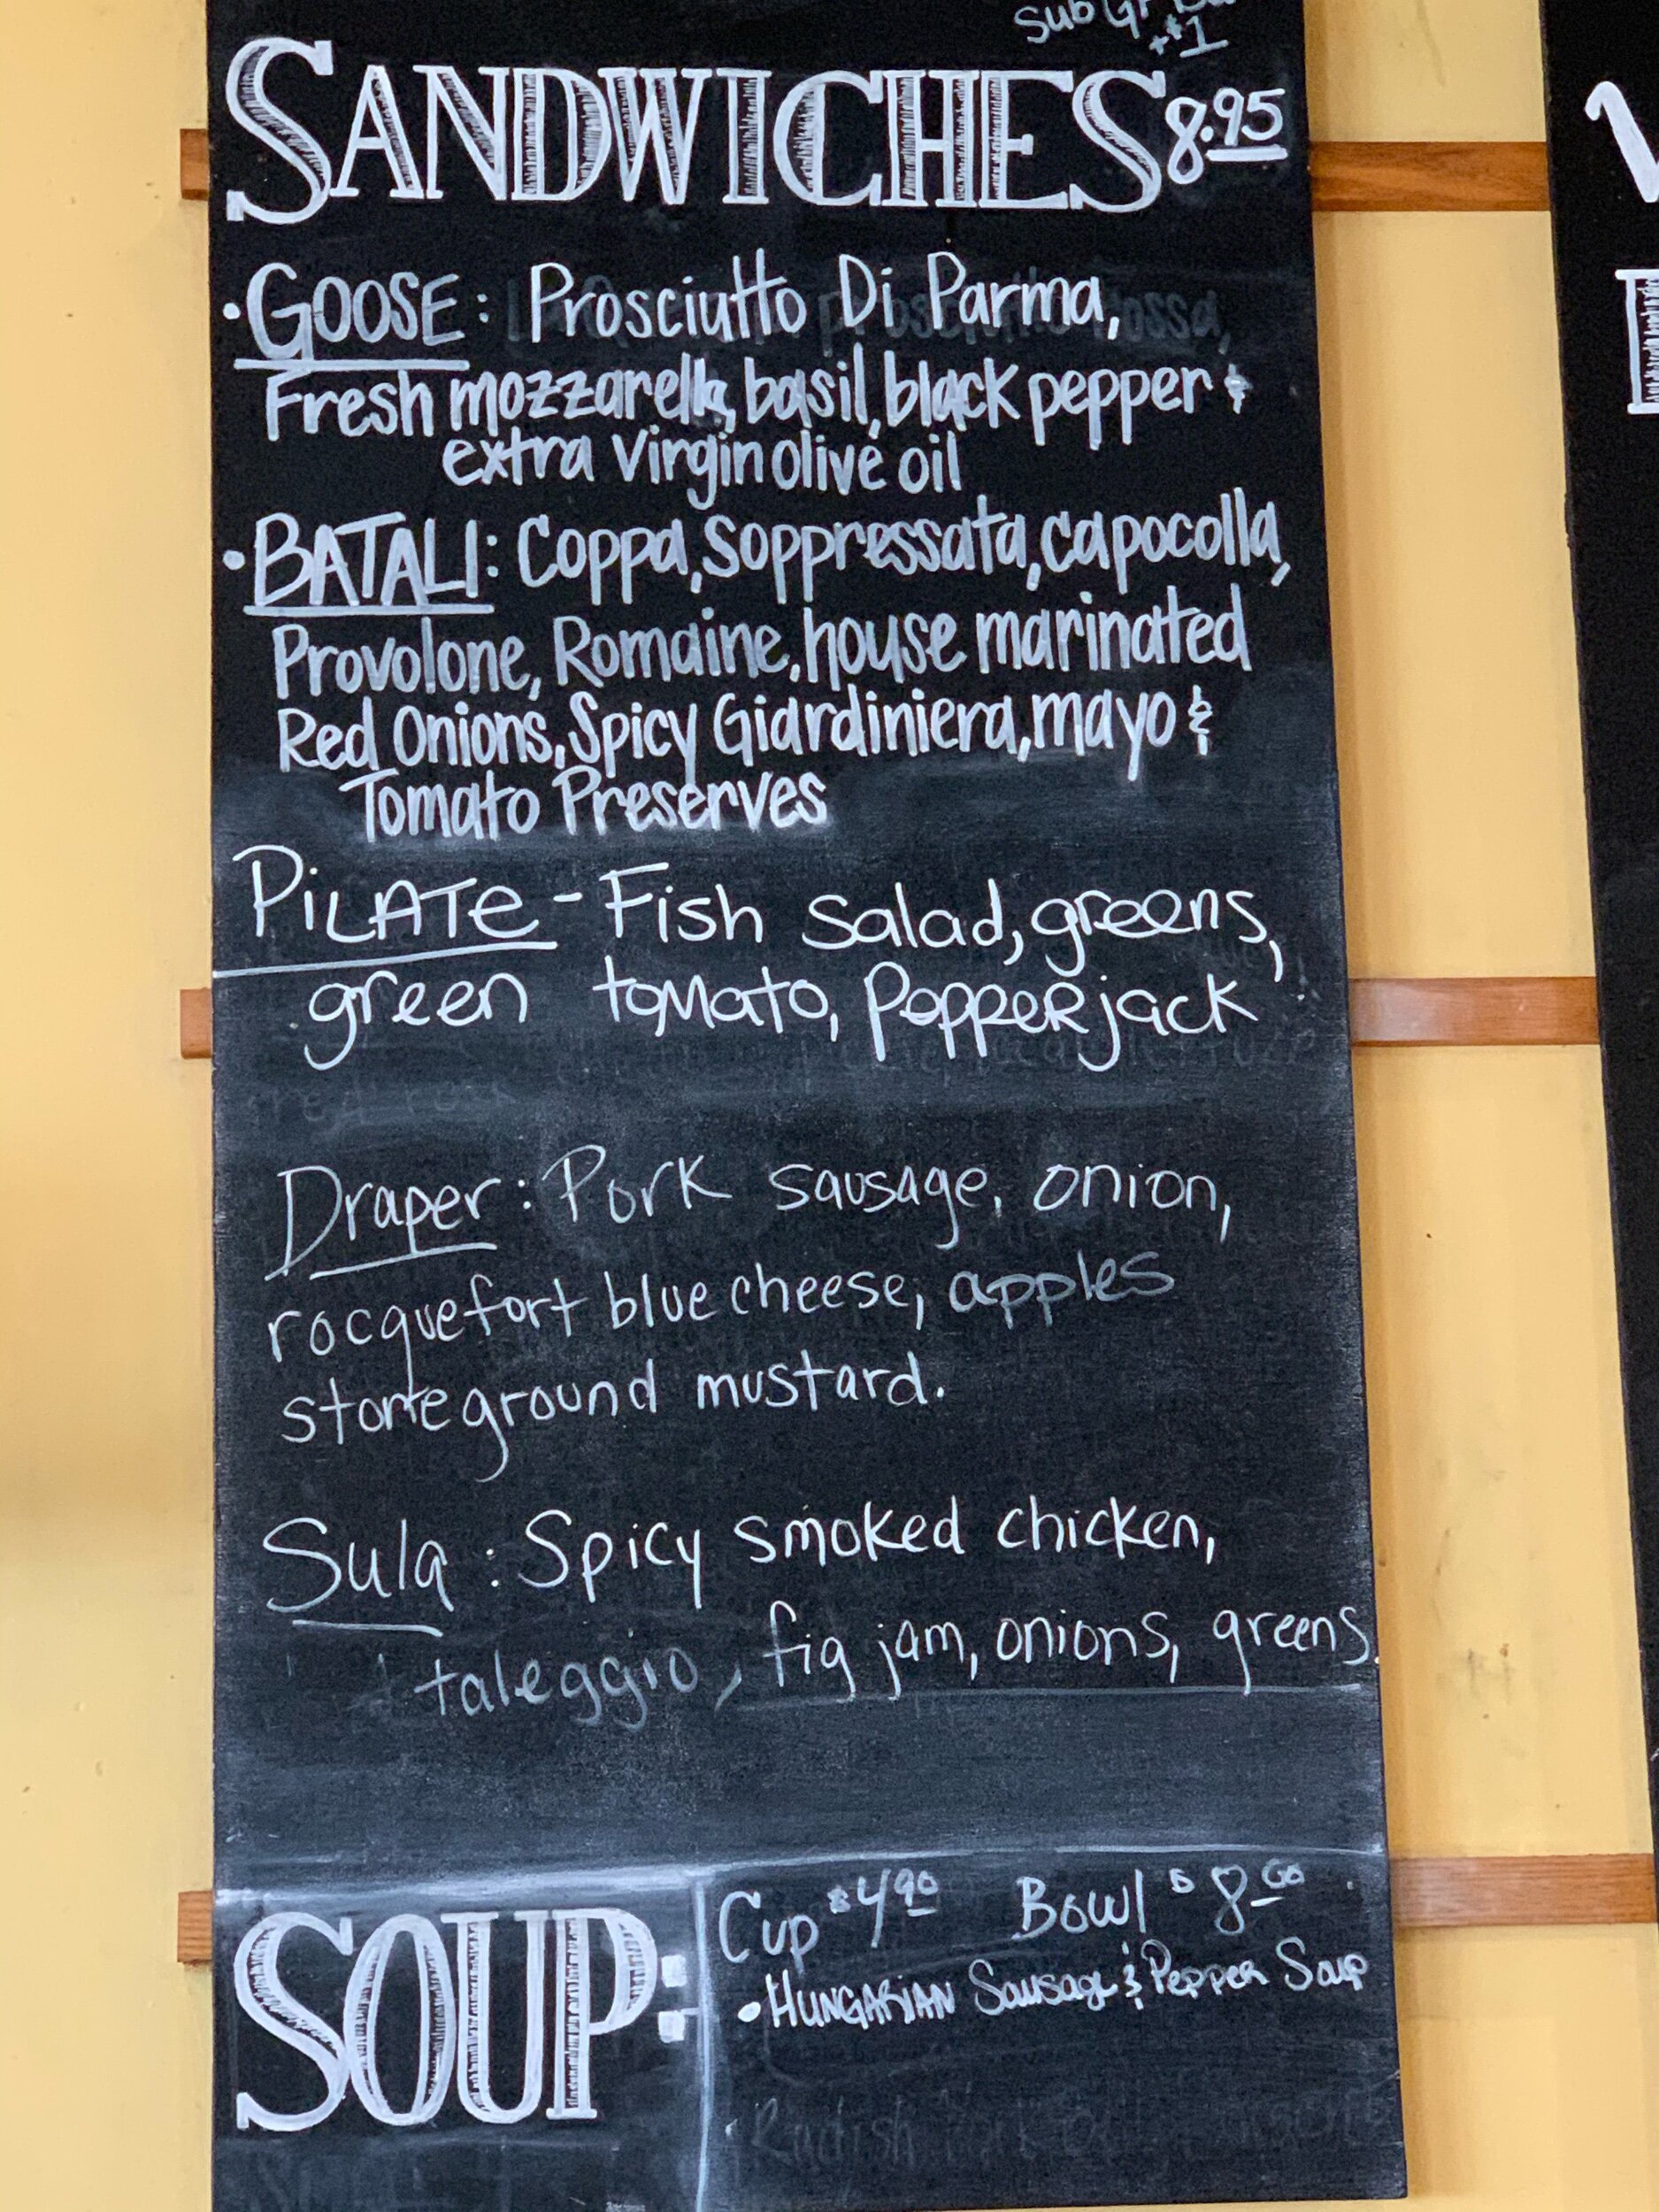 Sub GF
+$1
SANDWICHES 8.95
• GOOSE: Prosciutto Di Parma,
Fresh mozzarella, basil, black pepper &
extra virgin olive oil
• BATALI: Coppa, Soppressata, capocolla,
Provolone, Romaine, house marinated
Red Onions, Spicy Giardiniera, mayo &
Tomato Preserves
PiLATe - Fish Salad, greens,
green tomato, Pepperjack
Draper: Pork sausage, onion,
rocquefort blue cheese, apples
stoneground mustard.
Sula: Spicy smoked chicken,
taleggio, fig jam, onions, greens.
SOUP:
Cup $4.90 Bowl $8.00
• HUNGARIAN Sausage & Pepper Soup
Radish